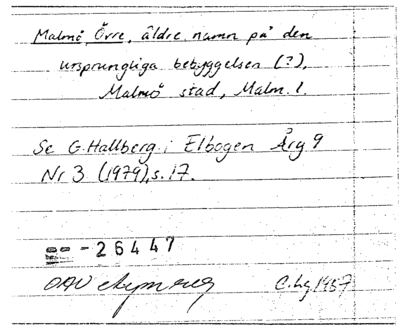 Malmö, Övre, äldre namn på den
ursprungliga bebyggelsen (?),
Malmö stad, Malm. l.
Se G. Hallberg i Elbogen Årg 9
Nr 3 (1979), s. 17.
-26447